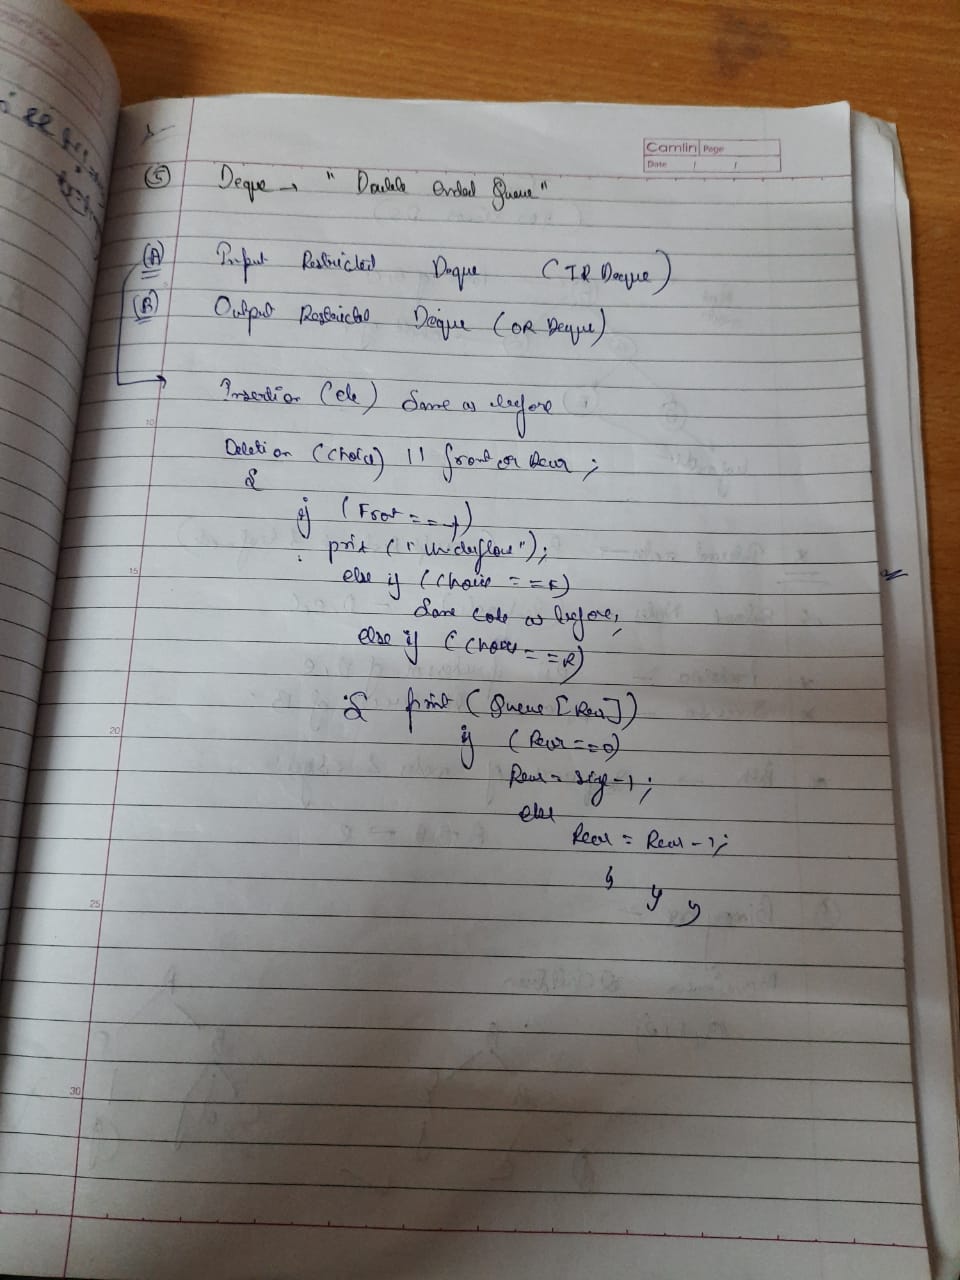 Camlin Page
Date / /
⑤ Deque → "Double Ended Queue"
Ⓐ Input Restricted Deque (IR Deque)
Ⓑ Output Restricted Deque (OR Deque)
Insertion (ele) Same as before
10
Deletion (choice) || front or Rear;
{
if (Front == -1)
print ("Underflow");
15
else if (choice == F)
Same code as before;
else if (choice == R)
{ print (Queue [Rear])
20
if (Rear == 0)
Rear = size - 1;
else
Rear = Rear - 1;
} } }
25
30